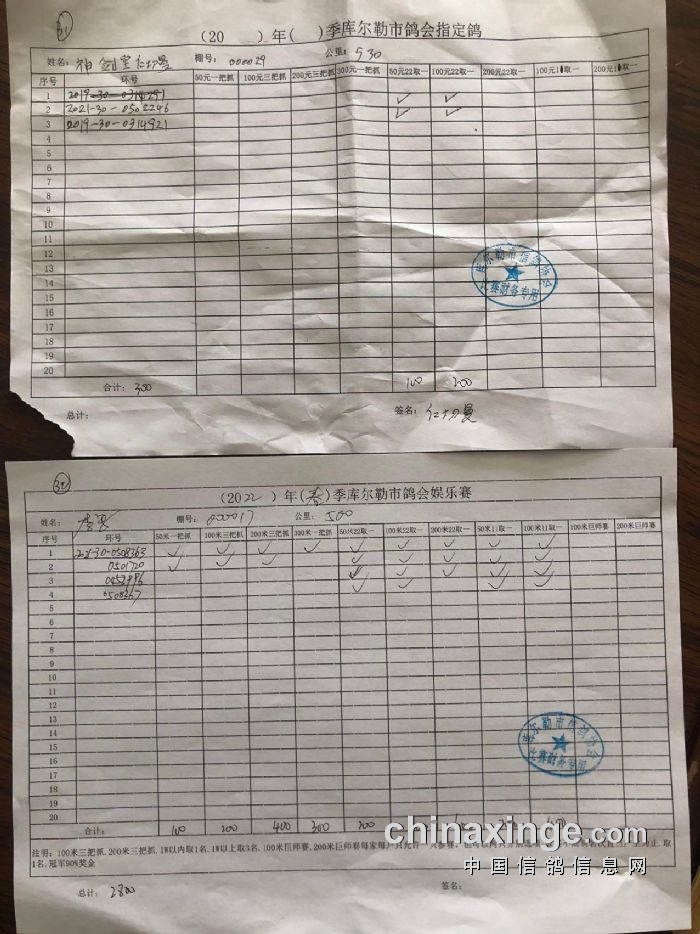 31
(20 )年( )季库尔勒市鸽会指定鸽
姓名: 神剑 棚号: 000029 公里: 530
序号 环号 50元一把抓 100元三把抓 200元三把抓 300元一把抓 50元22取一 100元22取一 200元22取一 100元10取一 200元10取一
1 2019-30-0314791 ✓ ✓
2 2021-30-0502246 ✓ ✓
3 2019-30-0314921
4
5
6
7
8
9
10
11
12
13
14
15
16
17
18
19
20
合计: 300 100 200
总计: 签名:
库尔勒市信鸽协会
比赛财务专用
32
(2022)年(春)季库尔勒市鸽会娱乐赛
姓名: 棚号: 000017 公里: 500
序号 环号 50米一把抓 100米三把抓 200米三把抓 300米一把抓 50米22取一 100米22取一 200米22取一 50米11取一 100米11取一 100米巨师赛 200米巨师赛
1 2021-30-0508363 ✓ ✓ ✓ ✓ ✓ ✓ ✓ ✓ ✓
2 0501720 ✓ ✓ ✓ ✓ ✓ ✓ ✓ ✓
3 ✓ ✓ ✓ ✓ ✓
4 0508367 ✓ ✓ ✓ ✓
5
6
7
8
9
10
11
12
13
14
15
16
17
18
19
20
库尔勒市信鸽协会
比赛财务专用
合计: 100 200 400 300 200
注明:100米三把抓,200米三把抓,1W以内取1名,1W以上取3名,100米巨师赛,200米巨师赛每家每户只允许
1名,冠军90%奖金
总计: 2800 签名:
chinaxinge.com
中国信鸽信息网